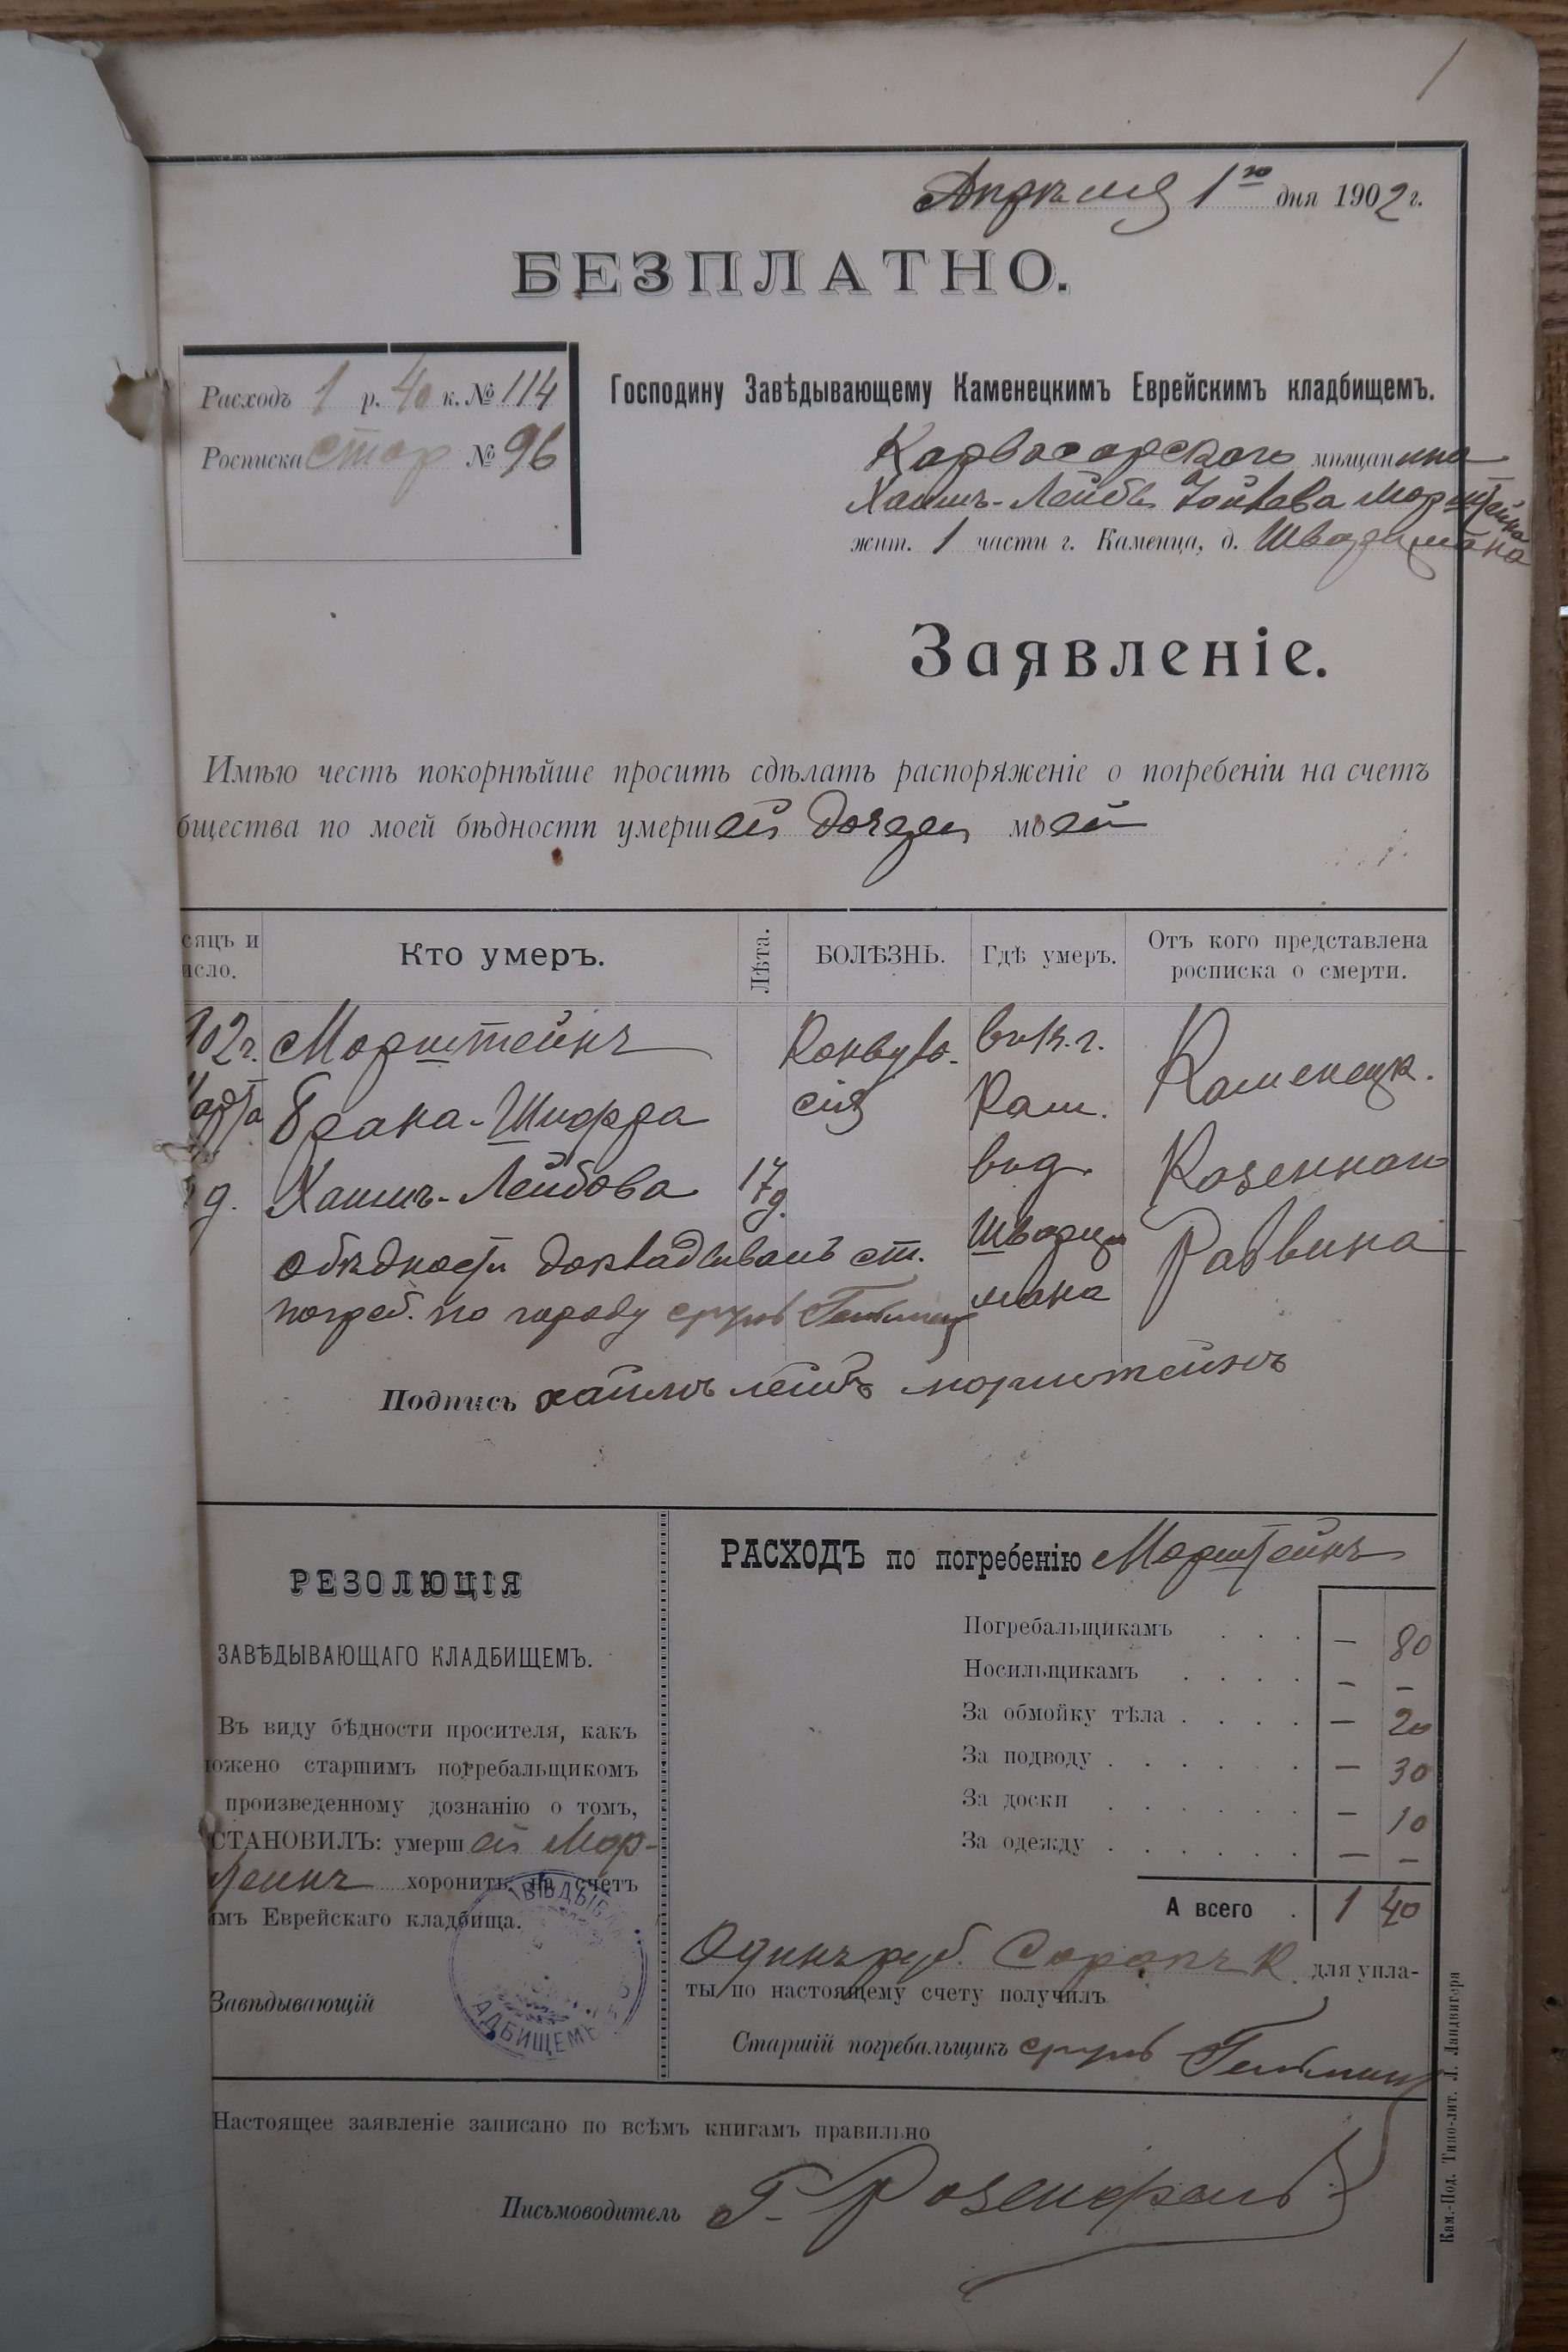 1
Апрѣля 1го дня 1902 г.
БЕЗПЛАТНО.
Расходъ 1 р. 40 к. № 114
Росписка стор № 96
Господину Завѣдывающему Каменецкимъ Еврейскимъ кладбищемъ.
Карвасарского мѣщанина
Хаимъ-Лейбъ Морштейна
жит. 1 части г. Каменца, д. Шварцмана
Заявленіе.
Имѣю честь покорнѣйше просить сдѣлать распоряженіе о погребеніи на счетъ
бщества по моей бѣдности умершей дочери моей
сяцъ и
исло.
Кто умеръ.
Лѣта.
БОЛѢЗНЬ.
Гдѣ умеръ.
Отъ кого представлена
росписка о смерти.
902 г.
Марта
д.
Морштейнъ
Брана-Шифра
Хаимъ-Лейбова
17 д.
Конвуль-
сія
въ г.
Кам.
въ д.
Шварц
мана
Каменецк.
Казеннаго
Раввина
О бѣдности докладывалъ ст.
погреб. по городу сруль Гельман
Подпись хаимъ лейбъ морштейнъ
РЕЗОЛЮЦІЯ
ЗАВѢДЫВАЮЩАГО КЛАДБИЩЕМЪ.
Въ виду бѣдности просителя, какъ
ложено старшимъ погребальщикомъ
произведенному дознанію о томъ,
СТАНОВИЛЪ: умершей Мор-
тейнъ хоронить на счетъ
имъ Еврейскаго кладбища.
Завѣдывающій
ВѢДЫВ
АДБИЩЕМЪ
РАСХОДЪ по погребенію Морштейнъ
Погребальщикамъ . . . — 80
Носильщикамъ . . . . — —
За обмойку тѣла . . . . — 20
За подводу . . . . . — 30
За доски . . . . . . — 10
За одежду . . . . . . — —
А всего . 1 40
Одинъ руб. Сорокъ К. для упла-
ты по настоящему счету получилъ
Старшій погребальщикъ сруль Гельман
Настоящее заявленіе записано по всѣмъ книгамъ правильно
Письмоводитель Г. Розенфельд
Кам.-Под. Типо-лит. Л. Ландвигера